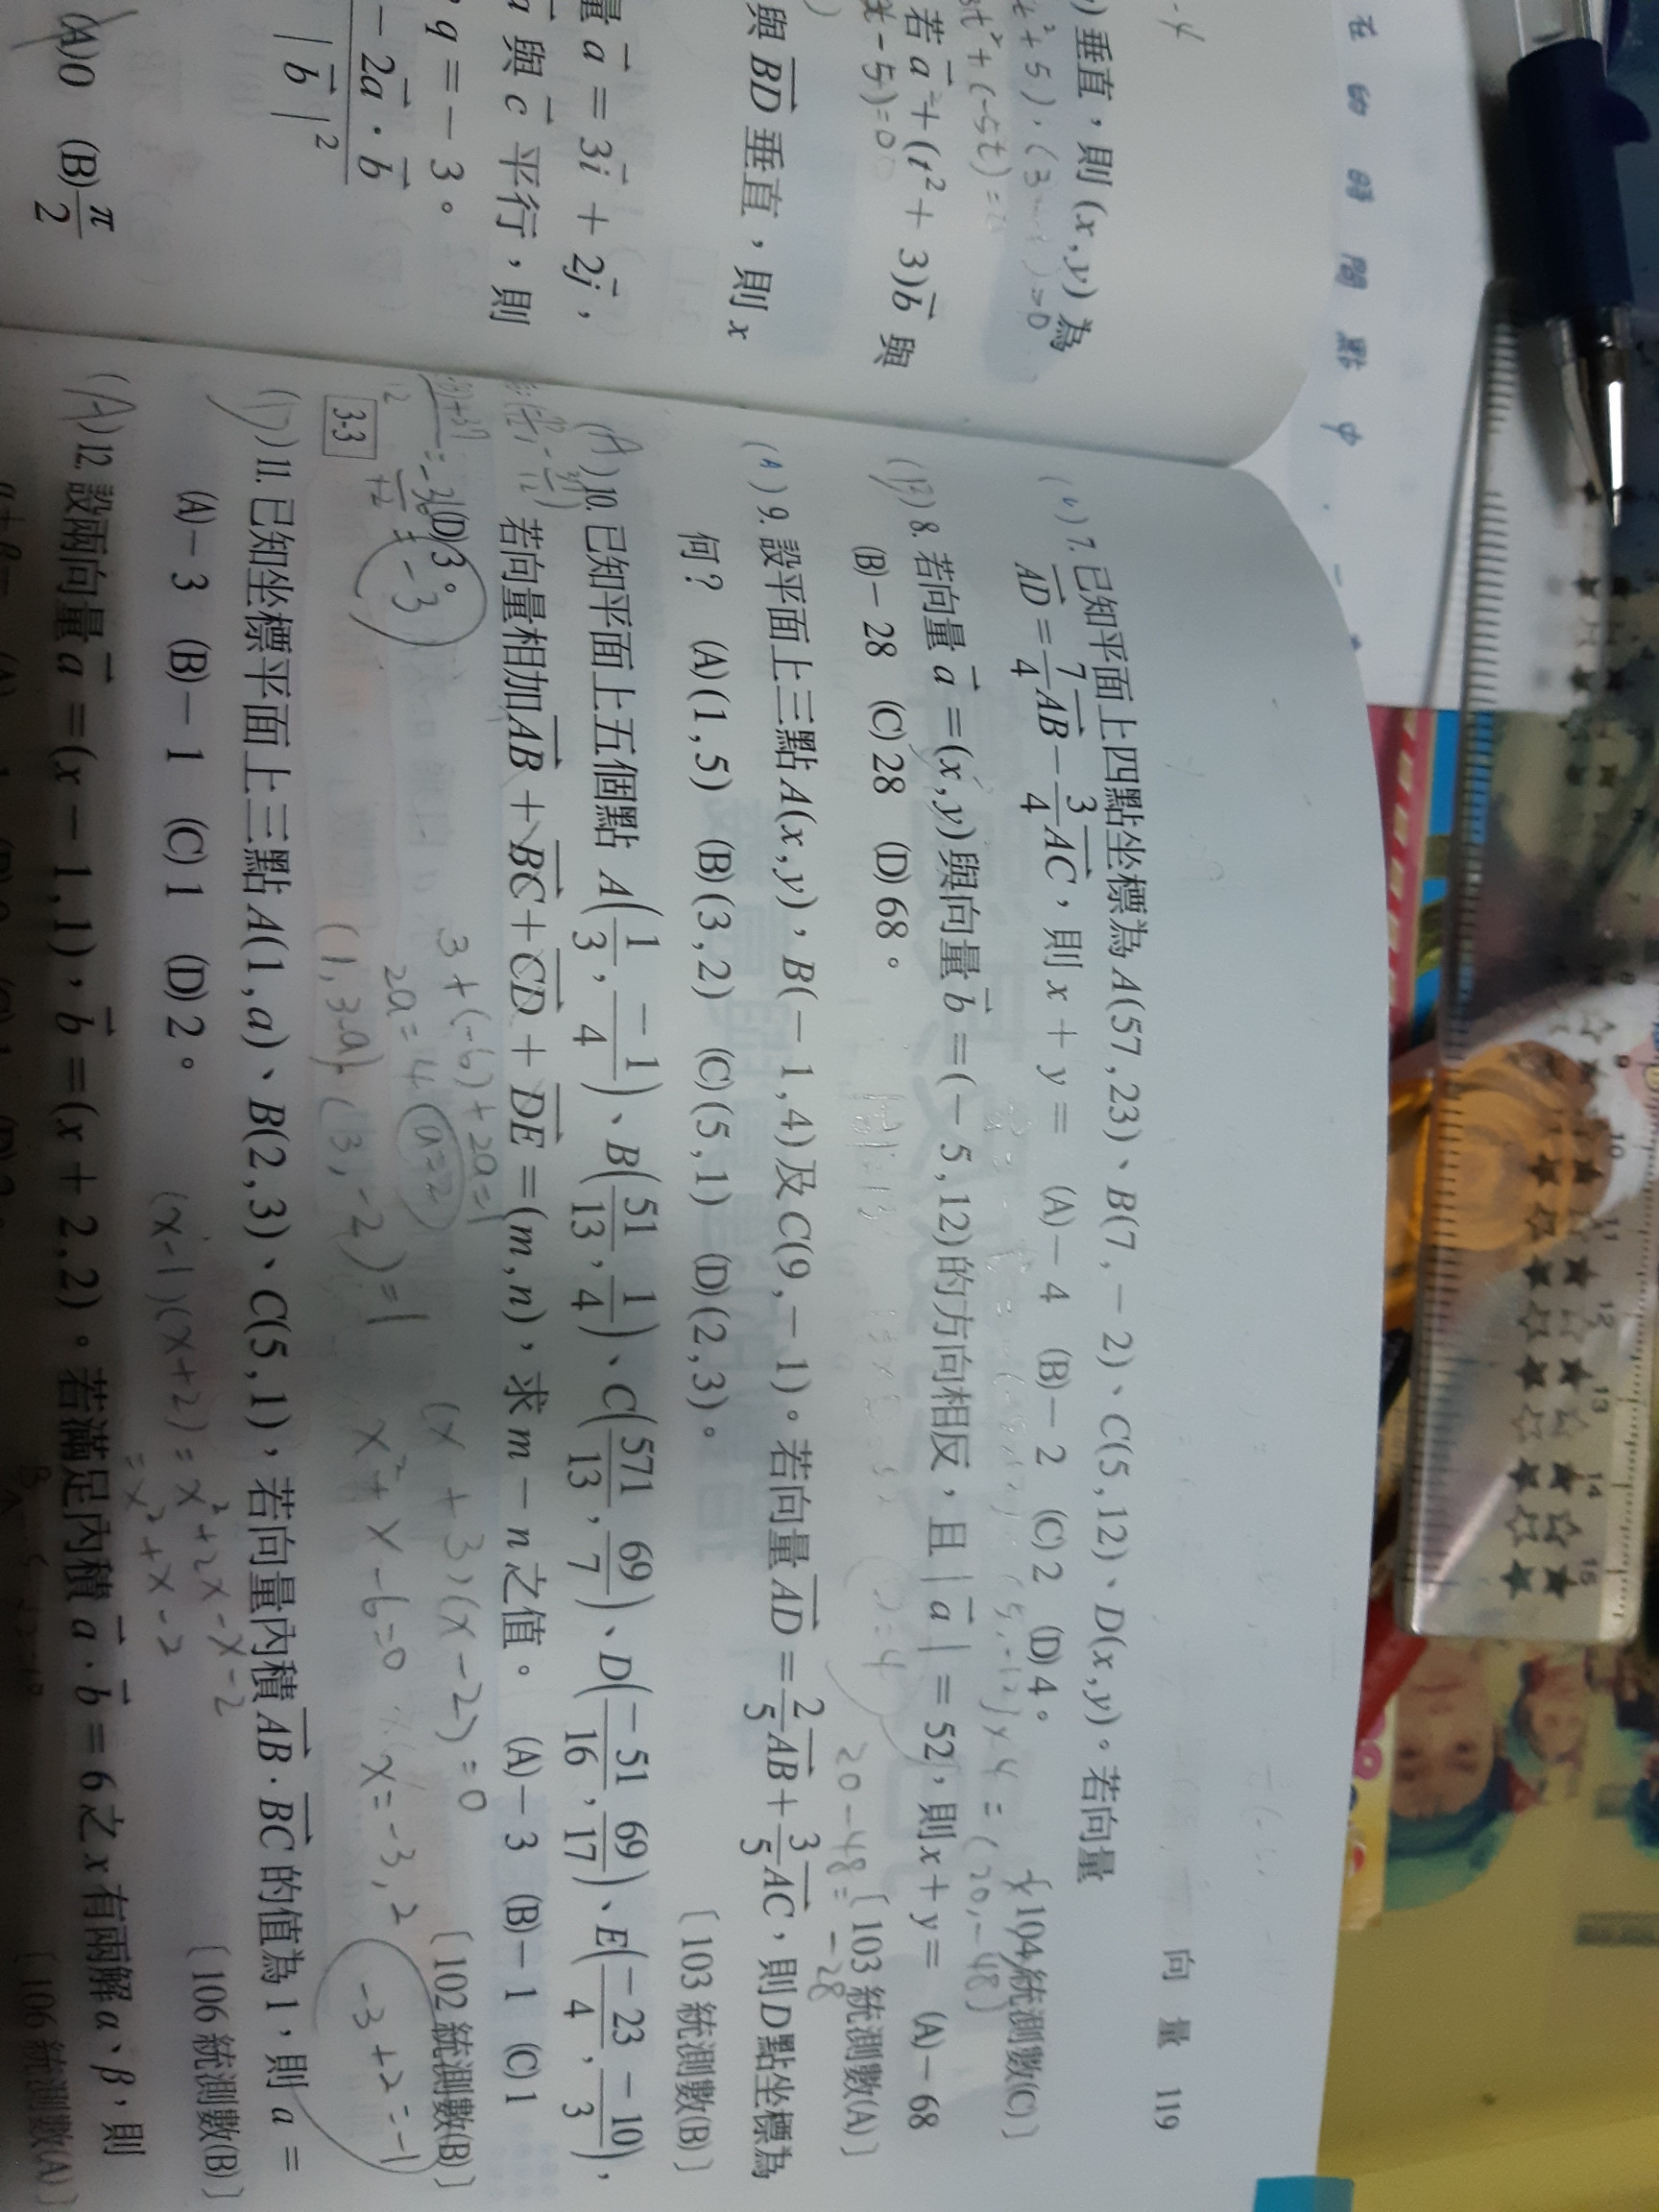 向 量 119
7. 已知平面上四點坐標為 A(57,23)、B(7,-2)、C(5,12)、D(x,y)。若向量
AD = 7/4 AB - 3/4 AC,則 x + y = (A)-4 (B)-2 (C)2 (D)4。
〔104 統測數(C)〕
(B) 8. 若向量 a = (x,y) 與向量 b = (-5,12) 的方向相反,且 | a | = 52,則 x + y = (A)-68
(B)-28 (C)28 (D)68。
〔103 統測數(A)〕
(5,-12)×4 = (20,-48)
20-48=-28
(A) 9. 設平面上三點 A(x,y),B(-1,4) 及 C(9,-1)。若向量 AD = 2/5 AB + 3/5 AC,則 D 點坐標為
何? (A)(1,5) (B)(3,2) (C)(5,1) (D)(2,3)。
〔103 統測數(B)〕
(A) 10. 已知平面上五個點 A(1/3, -1/4)、B(51/13, 1/4)、C(571/13, 69/7)、D(-51/16, 69/17)、E(-23/4, -10/3),
若向量相加 AB + BC + CD + DE = (m,n),求 m - n 之值。 (A)-3 (B)-1 (C)1
(D)3。
〔102 統測數(B)〕
3+(-6)+2a=1
2a=4 a=2
(1,3-a)·(3,-2)=1
(x+3)(x-2)=0
x²+x-6=0 x=-3,2
-3+2=-1
3-3
(D) 11. 已知坐標平面上三點 A(1,a)、B(2,3)、C(5,1),若向量內積 AB · BC 的值為 1,則 a =
(A)-3 (B)-1 (C)1 (D)2。
〔106 統測數(B)〕
(x-1)(x+2)=x²+2x-x-2
=x²+x-2
(A) 12. 設兩向量 a = (x-1,1),b = (x+2,2)。若滿足內積 a · b = 6 之 x 有兩解 α、β,則
〔106 統測數(A)〕
)垂直,則 (x,y) 為
若 a + (t² + 3)b 與
與 BD 垂直,則 x
量 a = 3i + 2j,
a 與 c 平行,則
q = -3。
- 2a · b
| b |²
(A)0 (B)π/2